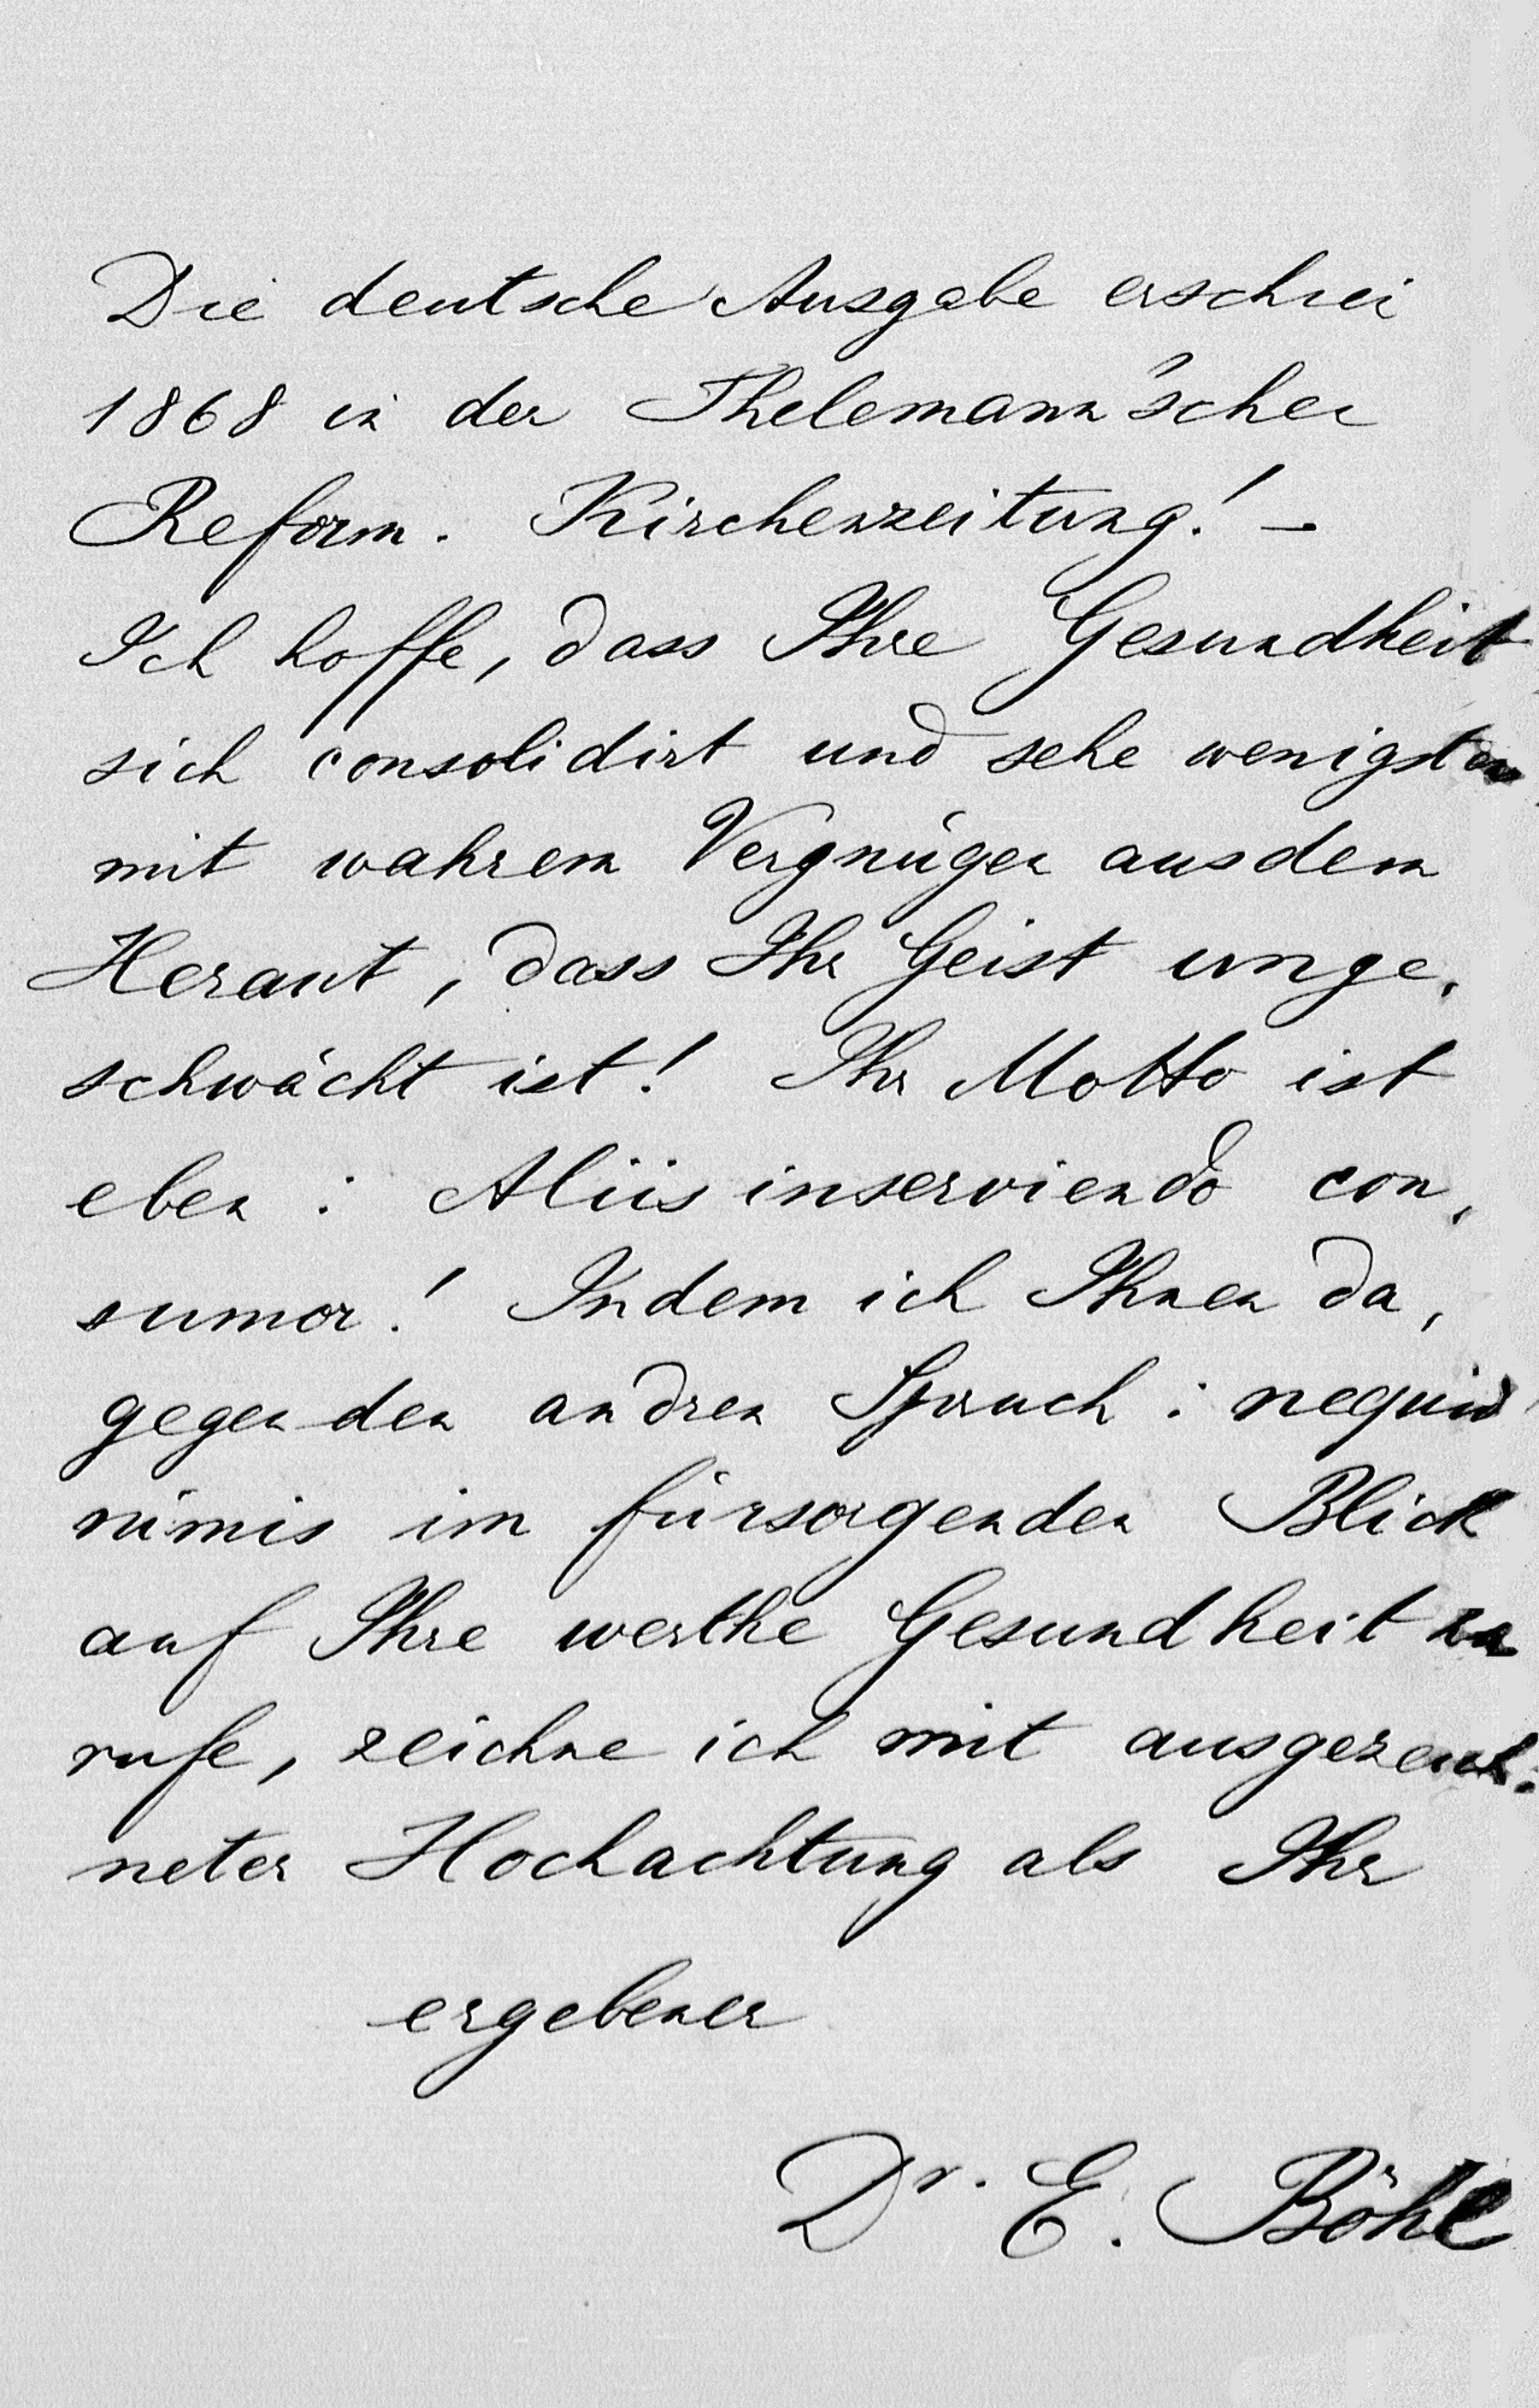 Die deutsche Ausgabe erschei
1868 in der Thelemann'schen
Reform. Kirchenzeitung! –
Ich hoffe, dass Ihre Gesundheit
sich consolidirt und sehe wenigsten
mit wahrem Vergnügen aus dem
Heraut, dass Ihr Geist unge,
schwächt ist! Ihr Motto ist
eben : Aliis inserviendo con,
sumor! Indem ich Ihnen da,
gegen den andren Spruch : nequid
nimis im fürsorgenden Blick
auf Ihre werthe Gesundheit zu
rufe, zeichne ich mit ausgezeich:
neter Hochachtung als Ihr
ergebener
Dr. E. Böhl